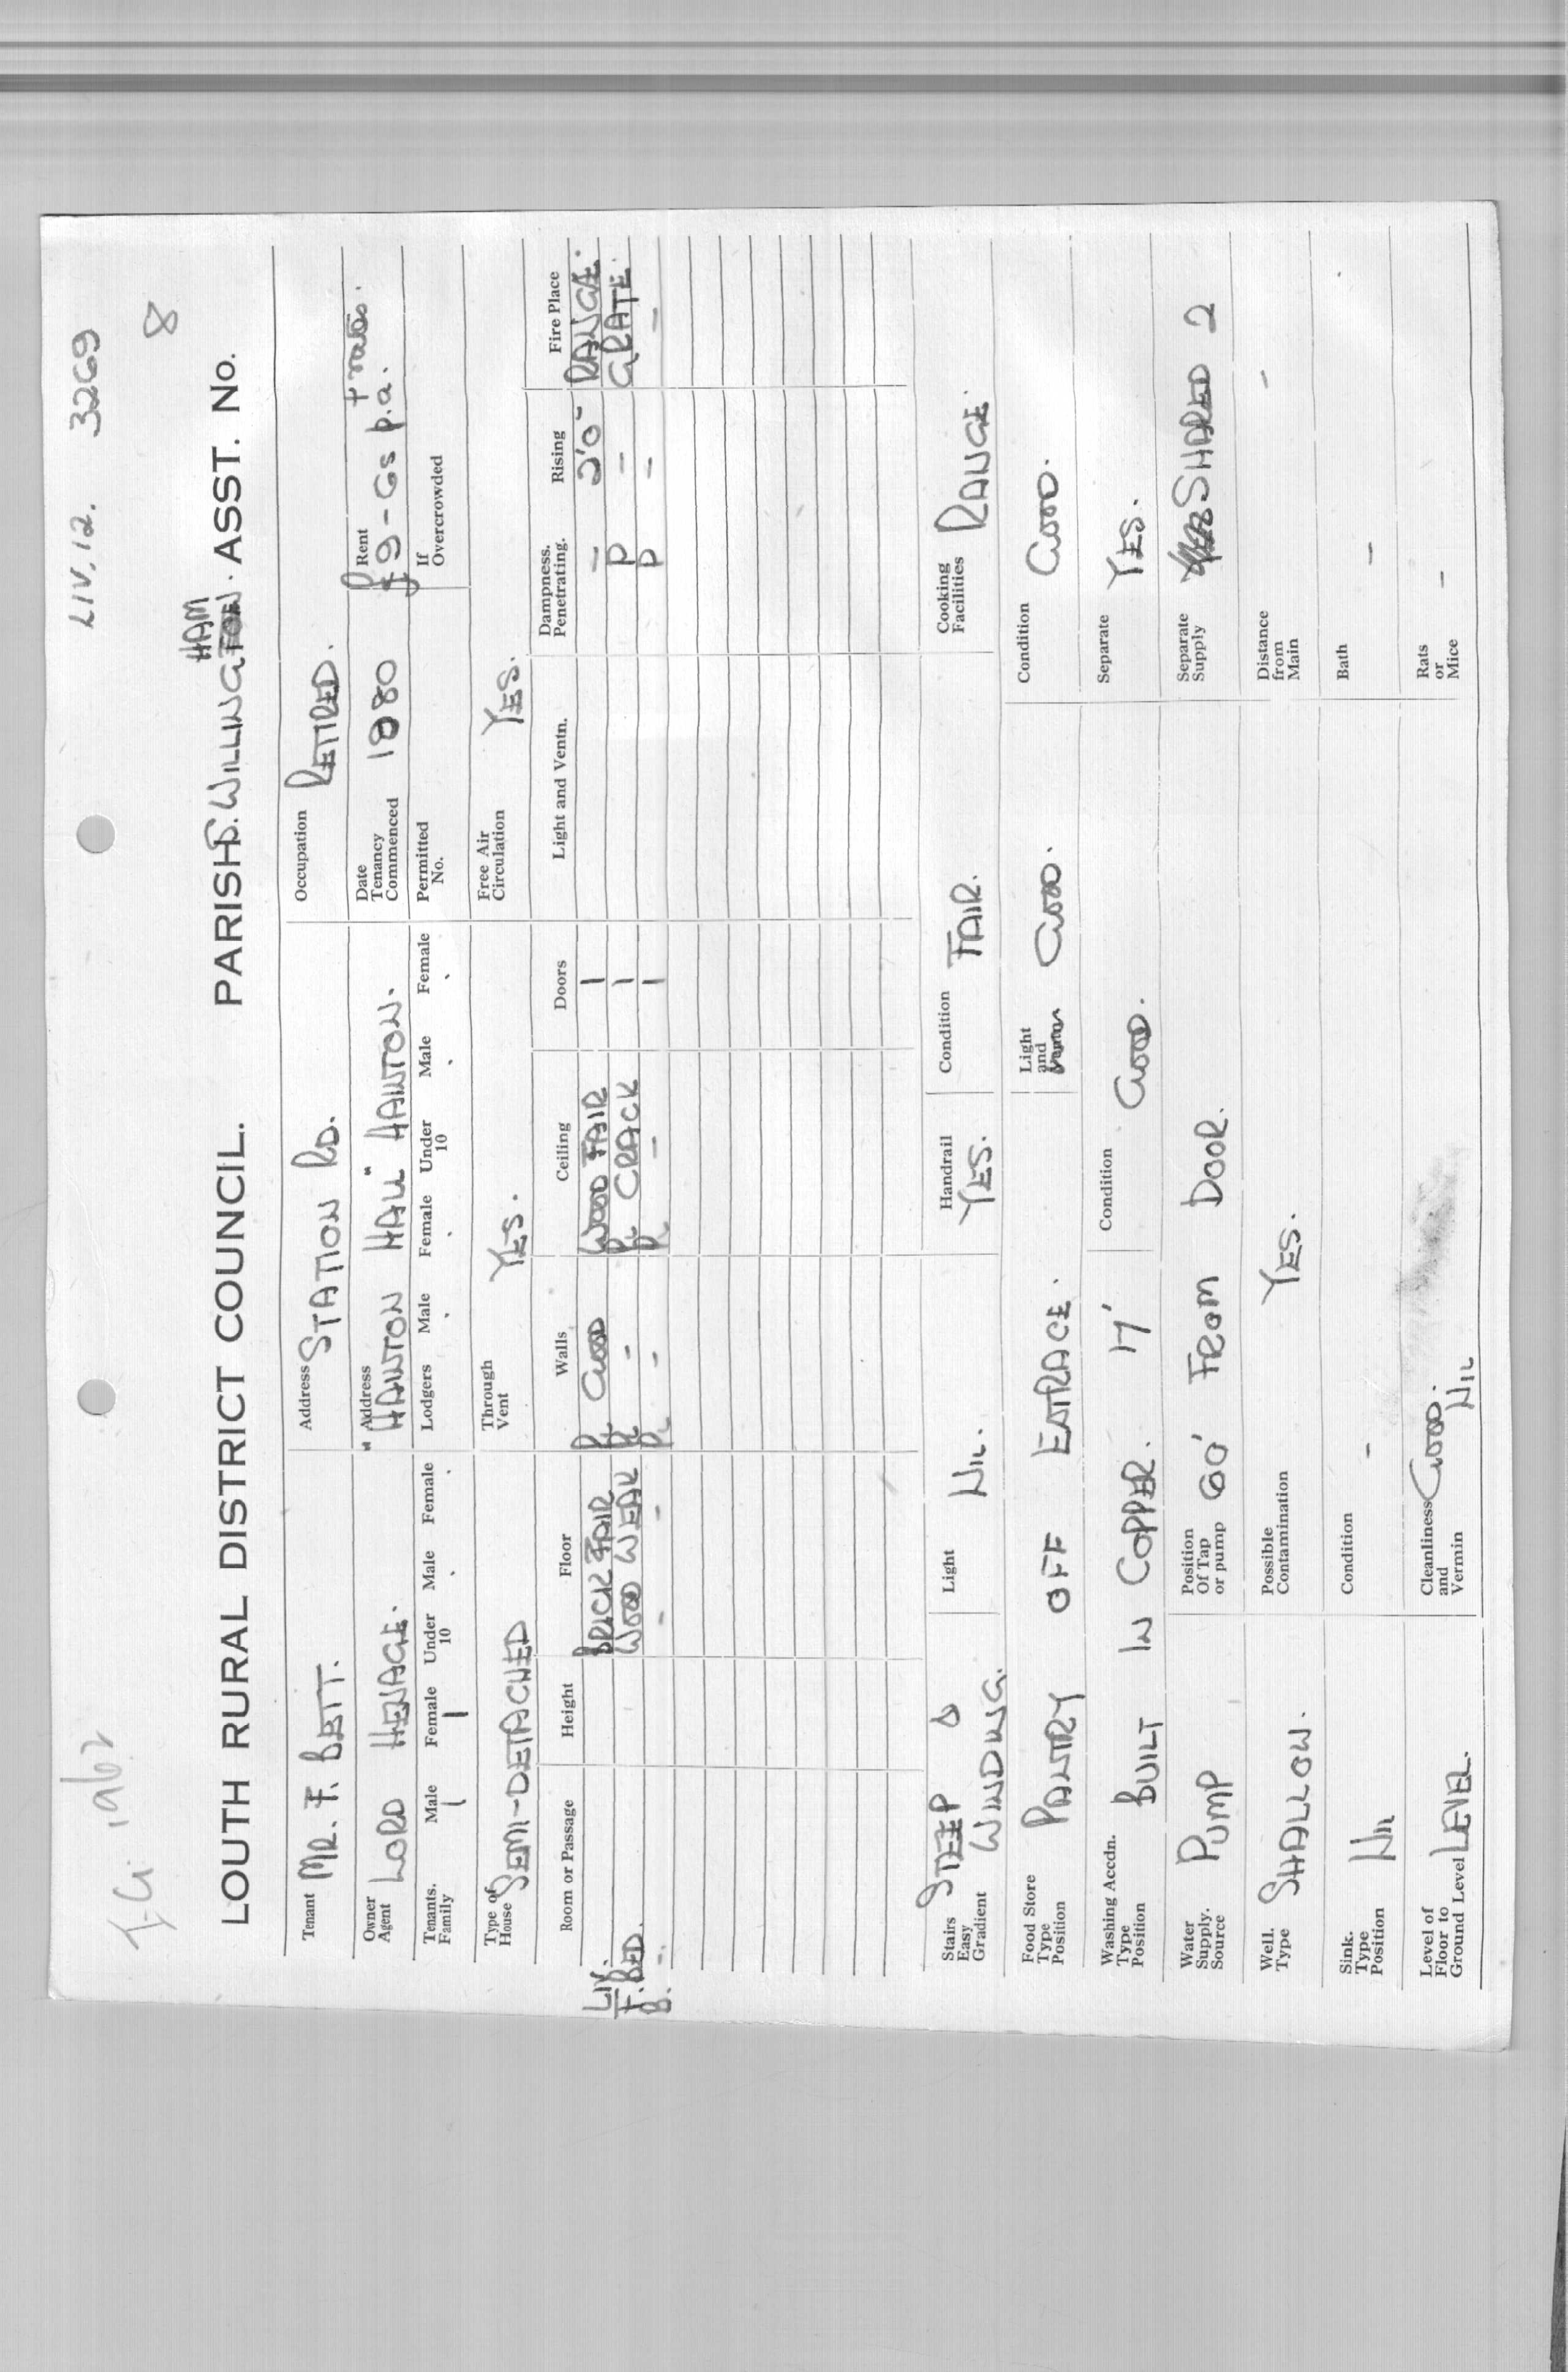 LIV. 12. 3269
8
LOUTH RURAL DISTRICT COUNCIL. PARISH S. WILLINGHAM. ASST. No.
Tenant MR. F. BETT. Address STATION RD. Occupation RETIRED.
Owner Agent LORD HENAGE. Address "HAINTON HALL" HAINTON. Date Tenancy Commenced 1880 Rent £9-6s p.a. + rates.
Tenants. Family Male 1 Female 1 Under 10 Male Female Lodgers Male Female Under 10 Male Female Permitted No. If Overcrowded
Type of House SEMI-DETACHED Through Vent YES. Free Air Circulation YES.
Room or Passage Height Floor Walls Ceiling Doors Light and Ventn. Dampness. Penetrating. Rising Fire Place
LIV. BRICK FAIR PL GOOD WOOD FAIR 1 - 2'0" RANGE.
F. BED. WOOD WEAK PL - PL CRACK 1 P - GRATE.
B. .. - - PL - PL - 1 P - -
Stairs Easy Gradient STEEP & WINDING. Light NIL. Handrail YES. Condition FAIR. Cooking Facilities RANGE.
Food Store Type Position PANTRY OFF ENTRACE. Light and GOOD. Condition GOOD.
Washing Accdn. Type Position BUILT IN COPPER. 17' Condition GOOD. Separate YES.
Water Supply. Source PUMP Position Of Tap or pump 60' FROM DOOR. Separate Supply SHARED 2
Well. Type SHALLOW. Possible Contamination YES. Distance from Main -
Sink. Type Position NIL Condition - Bath -
Level of Floor to Ground Level LEVEL. Cleanliness and Vermin GOOD. NIL Rats or Mice -